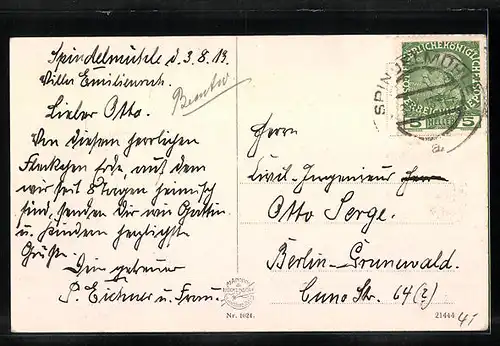 Spindelmühle d. 3.8.13.
Villa Emilienruh
Lieber Otto.
Von diesem herrlichen
Fleckchen Erde, auf dem
wir seit 8 Tagen heimisch
sind, senden Dir wie Gattin
u. Kindern herzlichste
Grüße
Dein getreuer
P. Eichner u. Frau.
SPINDELMÜH
5
HELLER
5
a
Herrn
Civil-Ingenieur Herr
Otto Serge.
Berlin-Grunewald.
Cuno Str. 64(?)
Nr. 1621.
21444
41